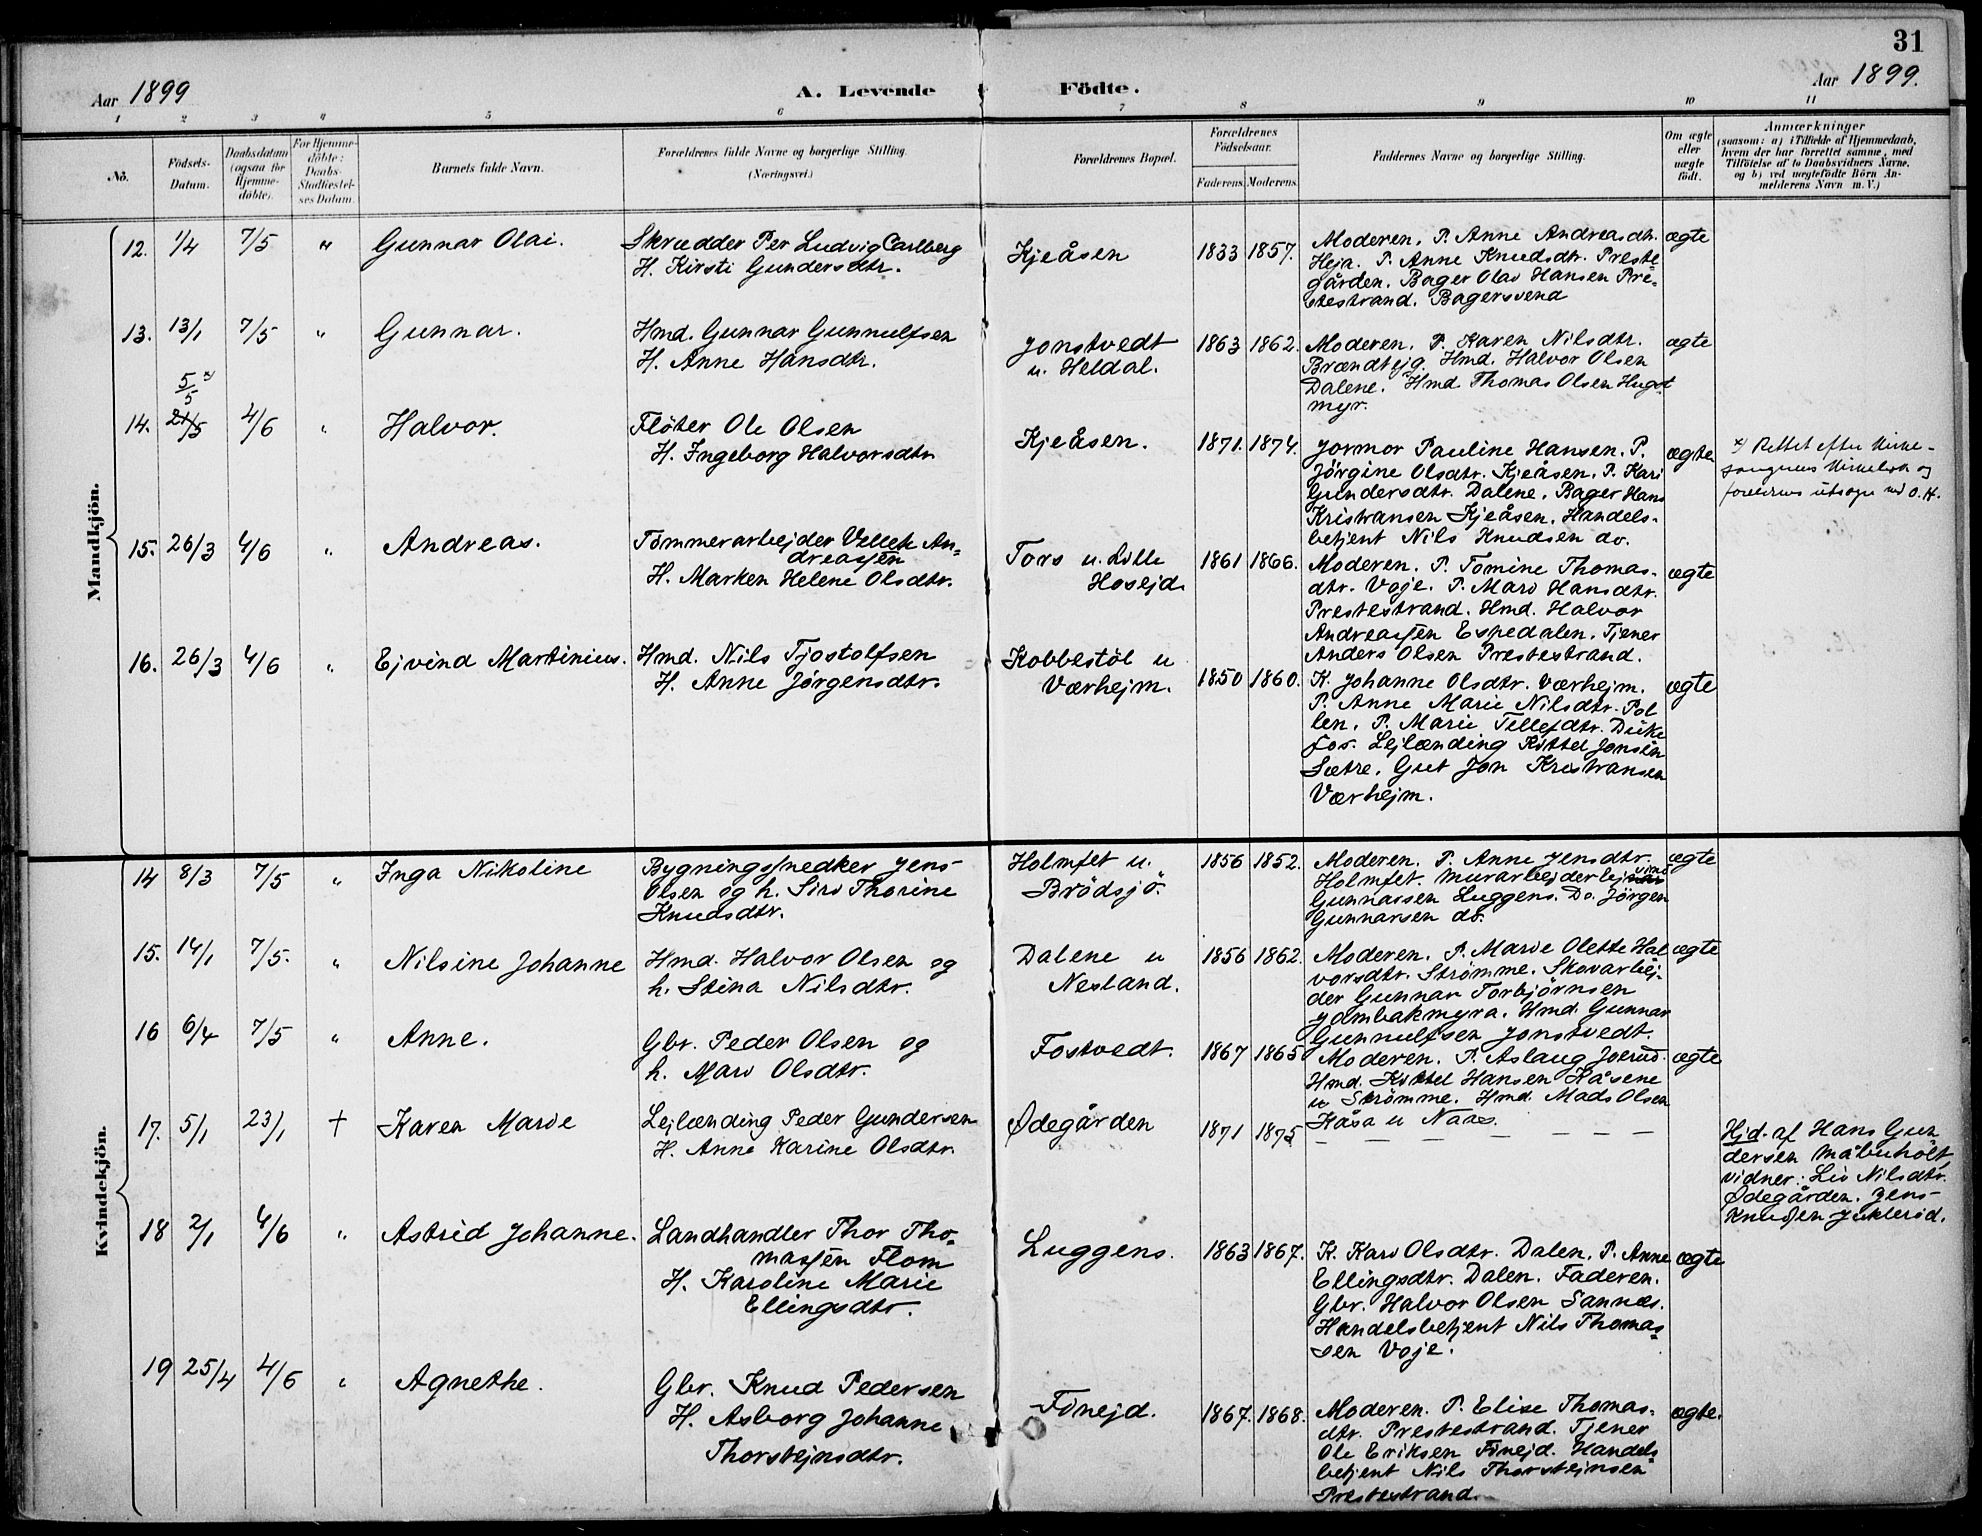 31
Aar 1899
A. Levende Födte.
Aar 1899.
1 2 3 4 5 6 7 8 9 10 11
No.
Födsels-
Datum.
Daabsdatum
(ogsaa for
Hjemme-
döbte).
For Hjemme-
döbte:
Daabs-
Stadfæstel-
ses Datum.
Barnets fulde Navn.
Forældrenes fulde Navne og borgerlige Stilling.
(Næringsvei.)
Forældrenes Bopæl.
Forældrenes
Födselsaar.
Faderens. Moderens.
Faddernes Navne og borgerlige Stilling.
Om ægte
eller
uægte
födt.
Anmærkninger
(saasom: a) i Tilfælde af Hjemmedaab,
hvem der har forrettet samme, med
Tilföielse af to Daabsvidners Navne,
og b) ved uægtefödte Börn An-
melderens Navn m. V.)
Mandkjön.
12. 1/4 7/5 " Gunnar Olai.
Skrædder Per Ludvig Carlberg
H. Kirsti Gundersdtr.
Kjeåsen
1833 1857.
Moderen. P. Anne Andreasdtr.
Heja. P. Anne Knudsdtr. Preste
gården. Bager Olav Hansen Pre-
stestrand. Bagersvend
ægte
13. 13/1 7/5 " Gunnar.
Hmd. Gunnar Gunnulfsen
H. Anne Hansdtr.
Jonstvedt
u. Heldal.
1863 1862.
Moderen. P. Karen Nilsdtr.
Brændhejg. Hmd. Halvor Olsen
Dalene. Hmd Thomas Olsen Hugst
myr.
ægte
5/5 x)
14. 21/5 4/6 " Halvor.
Flöter Ole Olsen
H. Ingeborg Halvorsdtr
Kjeåsen.
1871. 1874.
Jormor Pauline Hansen. P.
Jörgine Olsdtr. Kjeåsen. P. Kari
Gundersdtr. Dalene. Bager Hans
Kristiansen Kjeåsen. Handels-
betjent Nils Knudsen do.
ægte
x) Rettet efter Kirke-
sangerens Kirkebok og
foreldrenes utsagn ved O.H.
15. 26/3 4/6 " Andreas.
Tömmerarbejder Vellek An-
dreassen
H. Marken Helene Olsdtr.
Tors u. Lille
Hosejd.
1861 1866.
Moderen. P. Tomine Thomas-
dtr. Voje. P. Mari Hansdtr.
Prestestrand. Hmd. Halvor
Andreassen Espedalen. Tjener
Anders Olsen Prestestrand.
ægte
16. 26/3 4/6 " Ejvind Martinius.
Hmd. Nils Tjostolfsen
H. Anne Jørgensdtr.
Kobbestöl u
Værhejm.
1850 1860.
K. Johanne Olsdtr. Værhejm.
P. Anne Marie Nilsdtr. Pol
len. P. Marie Tellefdtr. Dike
fos. Lejlænding Kittel Jonsen
Sætre. Gut Jon Kristiansen
Værhejm.
ægte
Kvindekjön.
14 8/3 7/5 " Inga Nikoline
Bygningssnedker Jens
Olsen og h. Siri Thorine
Knudsdtr.
Holmfet u.
Brödsjö.
1856 1852.
Moderen. P. Anne Jensdtr.
Holmfet. Murarbejder Ejvind
Gunnarsen Luggens. Do. Jörgen
Gunnarsen do.
ægte
15. 14/1 7/5. " Nilsine Johanne
Hmd. Halvor Olsen og
h. Stina Nilsdtr.
Dalene u
Nesland.
1856 1862.
Moderen. P. Marie Olette Hal
vorsdtr. Strömme. Skovarbej-
der Gunnar Torbjörnsen
Jambakmyra. Hmd. Gunnar
Gunnulfsen Jonstvedt.
ægte
16 6/4 7/5 " Anne.
Gbr. Peder Olsen og
h. Mari Olsdtr.
Fostvedt.
1867 1865
Moderen. P. Aslaug Joerud.
Hmd. Kittel Hansen Kåsene
u Strömme. Hmd. Mads Olsen
Kåsa u Naes.
ægte
17. 5/1 23/1 † Karen Marie
Lejlænding Peder Gundersen
H. Anne Karine Olsdtr.
Ødegården
1871 1875
— — — — — — —
Hjd. af Hans Gun
dersen Måbuholt
vidner: Liv Nilsdtr.
Ødegården. Jens
Knudsen Juklerød.
18 2/1 4/6 " Astrid Johanne.
Landhandler Thor Tho-
massen Flom
H. Karoline Marie
Ellingsdtr.
Luggens.
1863 1867.
K. Kari Olsdtr. Dalen. P. Anne
Ellingsdtr. Dalen. Faderen.
Gbr. Halvor Olsen Sannes.
Handelsbetjent Nils Thomas-
sen Voje.
ægte
19 25/4 4/6 " Agnethe.
Gbr. Knud Pedersen
H. Asborg Johanne
Thorstejnsdtr.
Finejd.
1867. 1868.
Moderen. P. Elise Thomas-
dtr. Prestestrand. Tjener
Ole Eriksen Finejd. Handels-
betjent Nils Thorstejnsen
Prestestrand.
ægte.